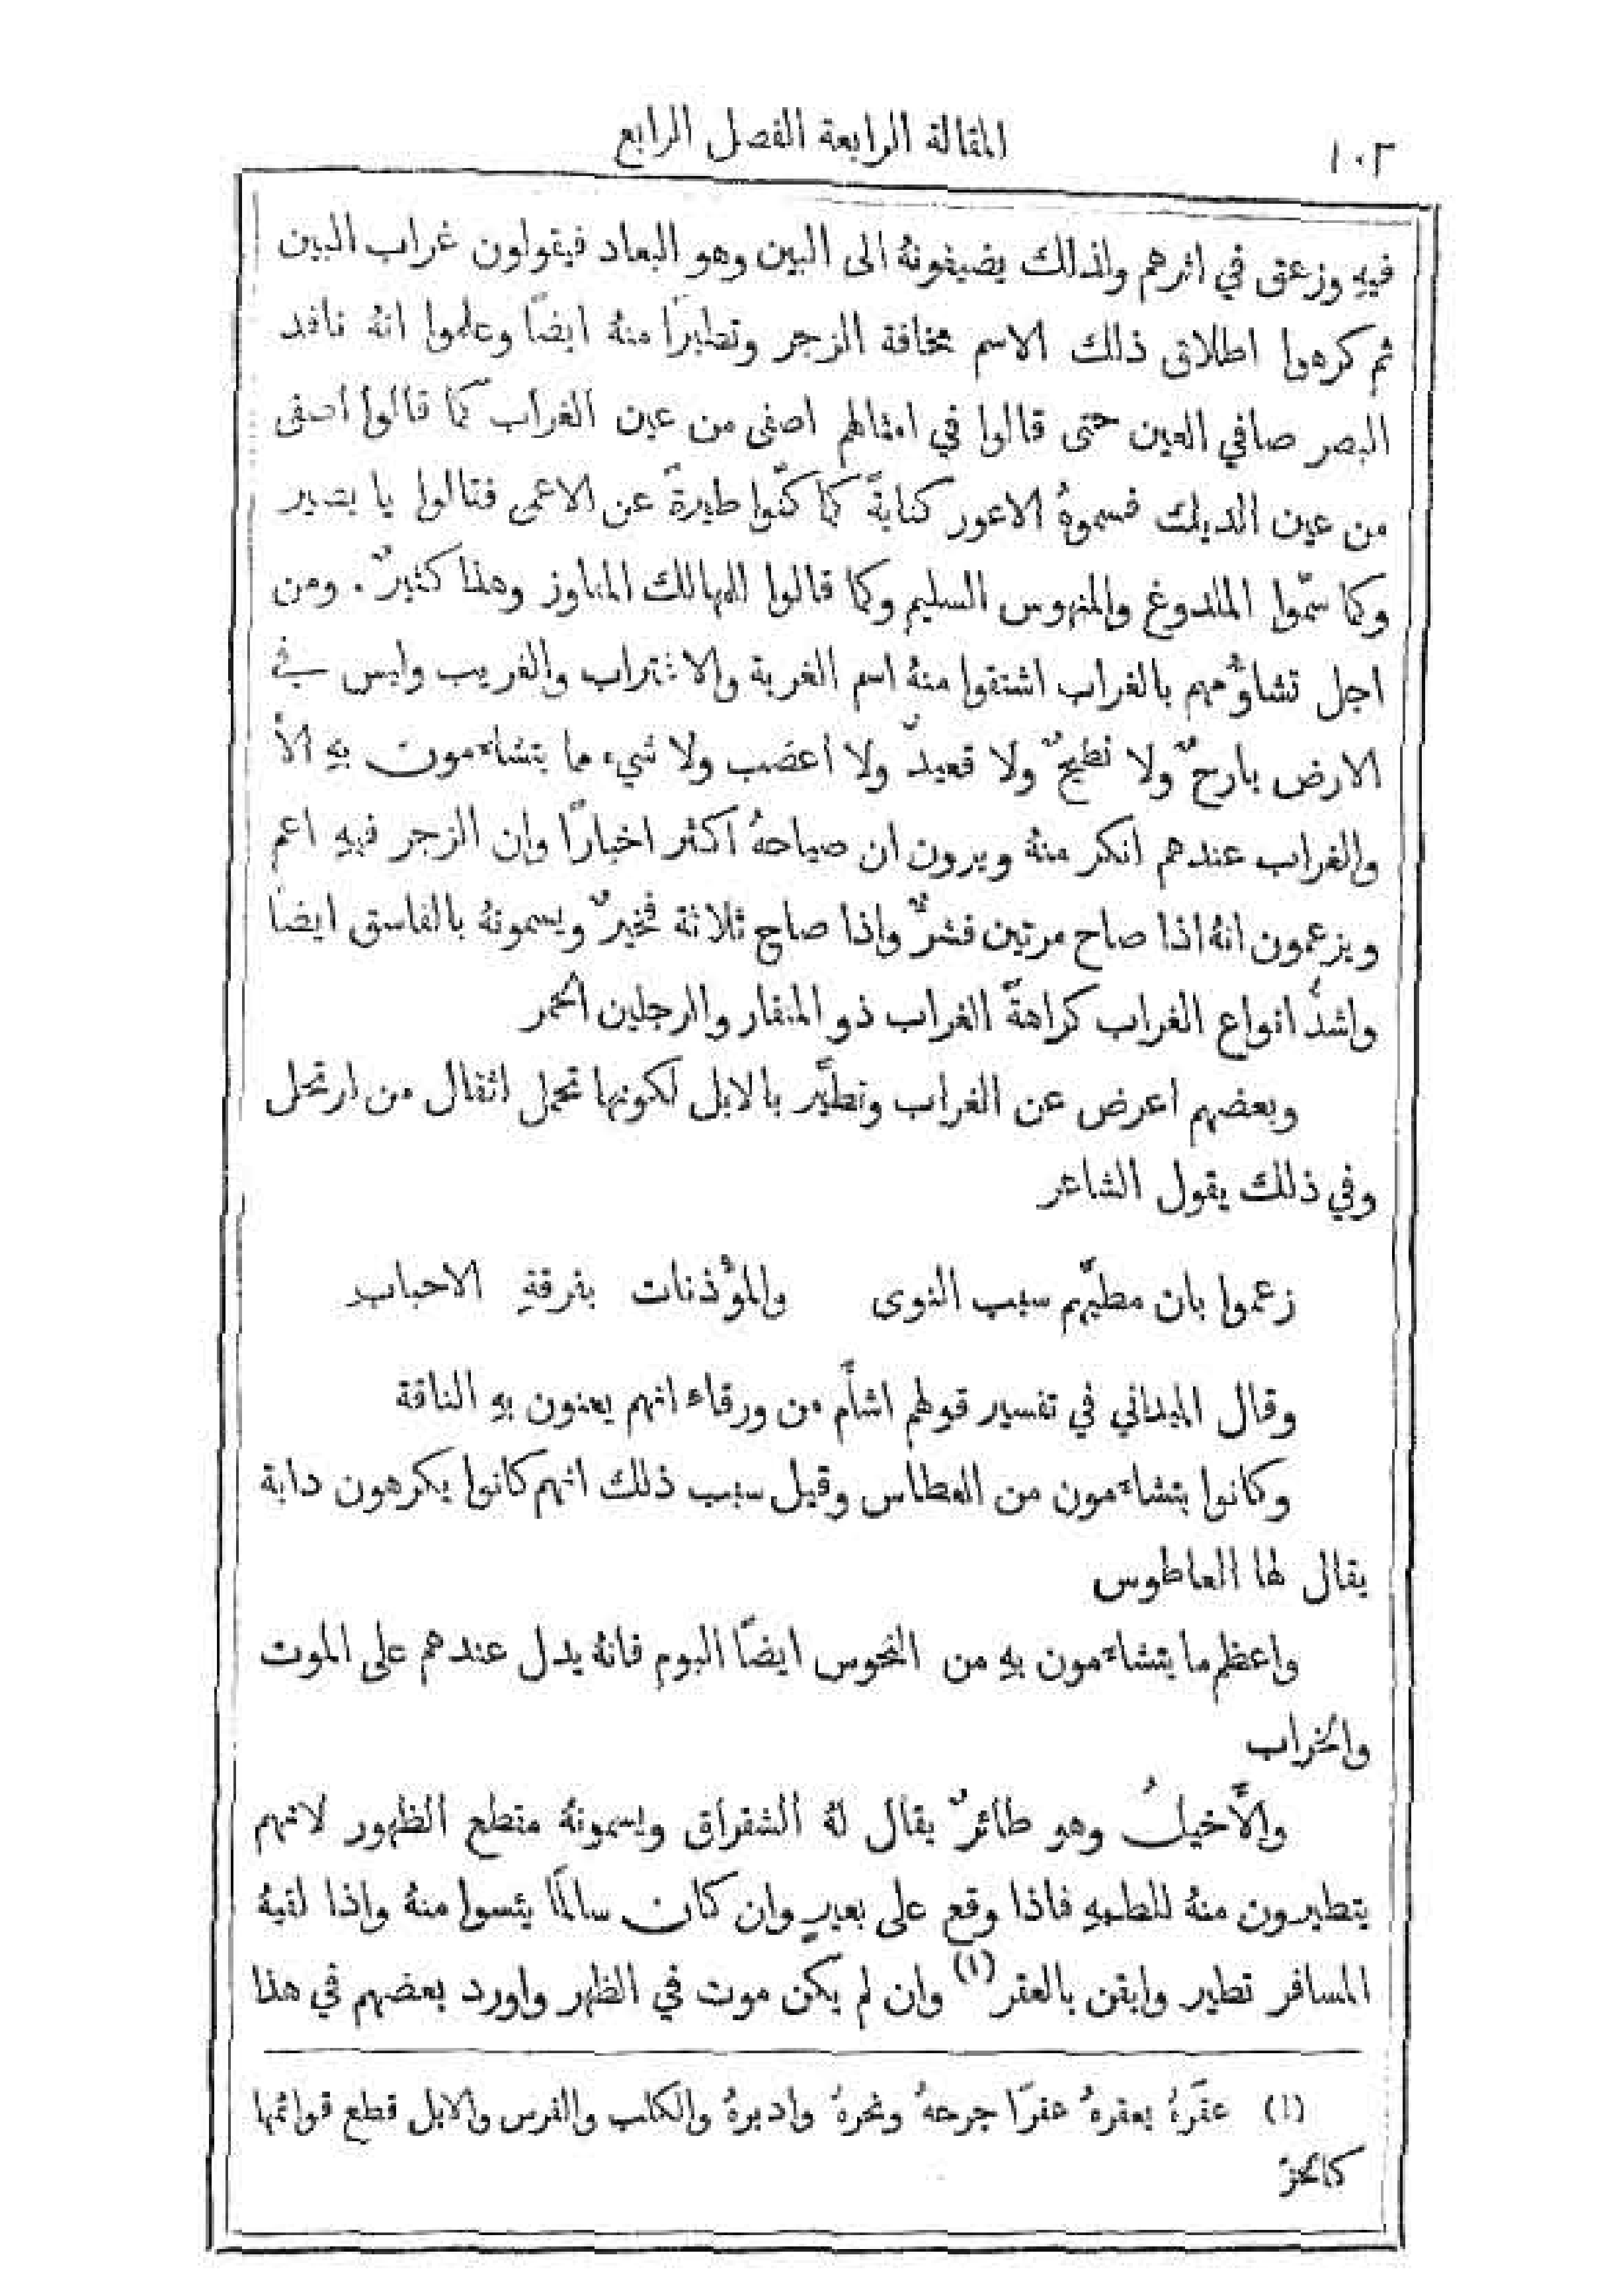 ١٠٢
المقالة الرابعة الفصل الرابع
فيهِ وزعق في اثرهم ولذلك يضيفونهُ الى البين وهو البعاد فيقولون غراب البين
ثم كرهوا اطلاق ذلك الاسم مخافة الزجر وتطيرًا منهُ ايضًا وعلموا انهُ نافذ
البصر صافي العين حتى قالوا في امثالهم اصفى من عين الغراب كما قالوا اصفى
من عين الديك فسموهُ الاعور كنايةً كما كنّوا طيرةً عن الاعمى فقالوا يا بصير
وكما سمّوا الملدوغ والمنهوس السليم وكما قالوا للمهالك المفاوز وهذا كثيرٌ . ومن
اجل تشاؤُمهم بالغراب اشتقوا منهُ اسم الغربة والاغتراب والغريب وليس في
الارض بارحٌ ولا نطيحٌ ولا قعيدٌ ولا اعضب ولا شيء مما يتشاءمون بهِ الاَّ
والغراب عندهم انكر منهُ ويرون ان صياحهُ اكثر اخبارًا وان الزجر فيهِ اعم
ويزعمون انهُ اذا صاح مرتين فشرٌّ واذا صاح ثلاثة فخيرٌ ويسمونهُ بالفاسق ايضًا
واشدُّ انواع الغراب كراهةً الغراب ذو المنقار والرجلين الحُمر
وبعضهم اعرض عن الغراب وتطيَّر بالابل لكونها تحمل اثقال من ارتحل
وفي ذلك يقول الشاعر
زعموا بان مطيَّهم سبب النوى والمؤْذنات بفرقةِ الاحباب
وقال الميداني في تفسير قولهم اشأَم من ورقاء انهم يعنون بهِ الناقة
وكانوا يتشاءمون من العطاس وقيل سبب ذلك انهم كانوا يكرهون دابة
يقال لها العاطوس
واعظم ما يتشاءمون بهِ من النحوس ايضًا البوم فانهُ يدل عندهم على الموت
والخراب
والأَخيلُ وهو طائرٌ يقال لهُ الشقراق ويسمونهُ مقطع الظهور لانهم
يتطيرون منهُ للطمهِ فاذا وقع على بعيرٍ وان كان سالمًا يئسوا منهُ واذا لقيهُ
المسافر تطير وايقن بالعقر (١) وان لم يكن موت في الظهر واورد بعضهم في هذا
(١) عقَرهُ يعقرهُ عقرًا جرحهُ ونحرهُ وادبرهُ والكلب والفرس والابل قطع قوائمها
كالحزّ